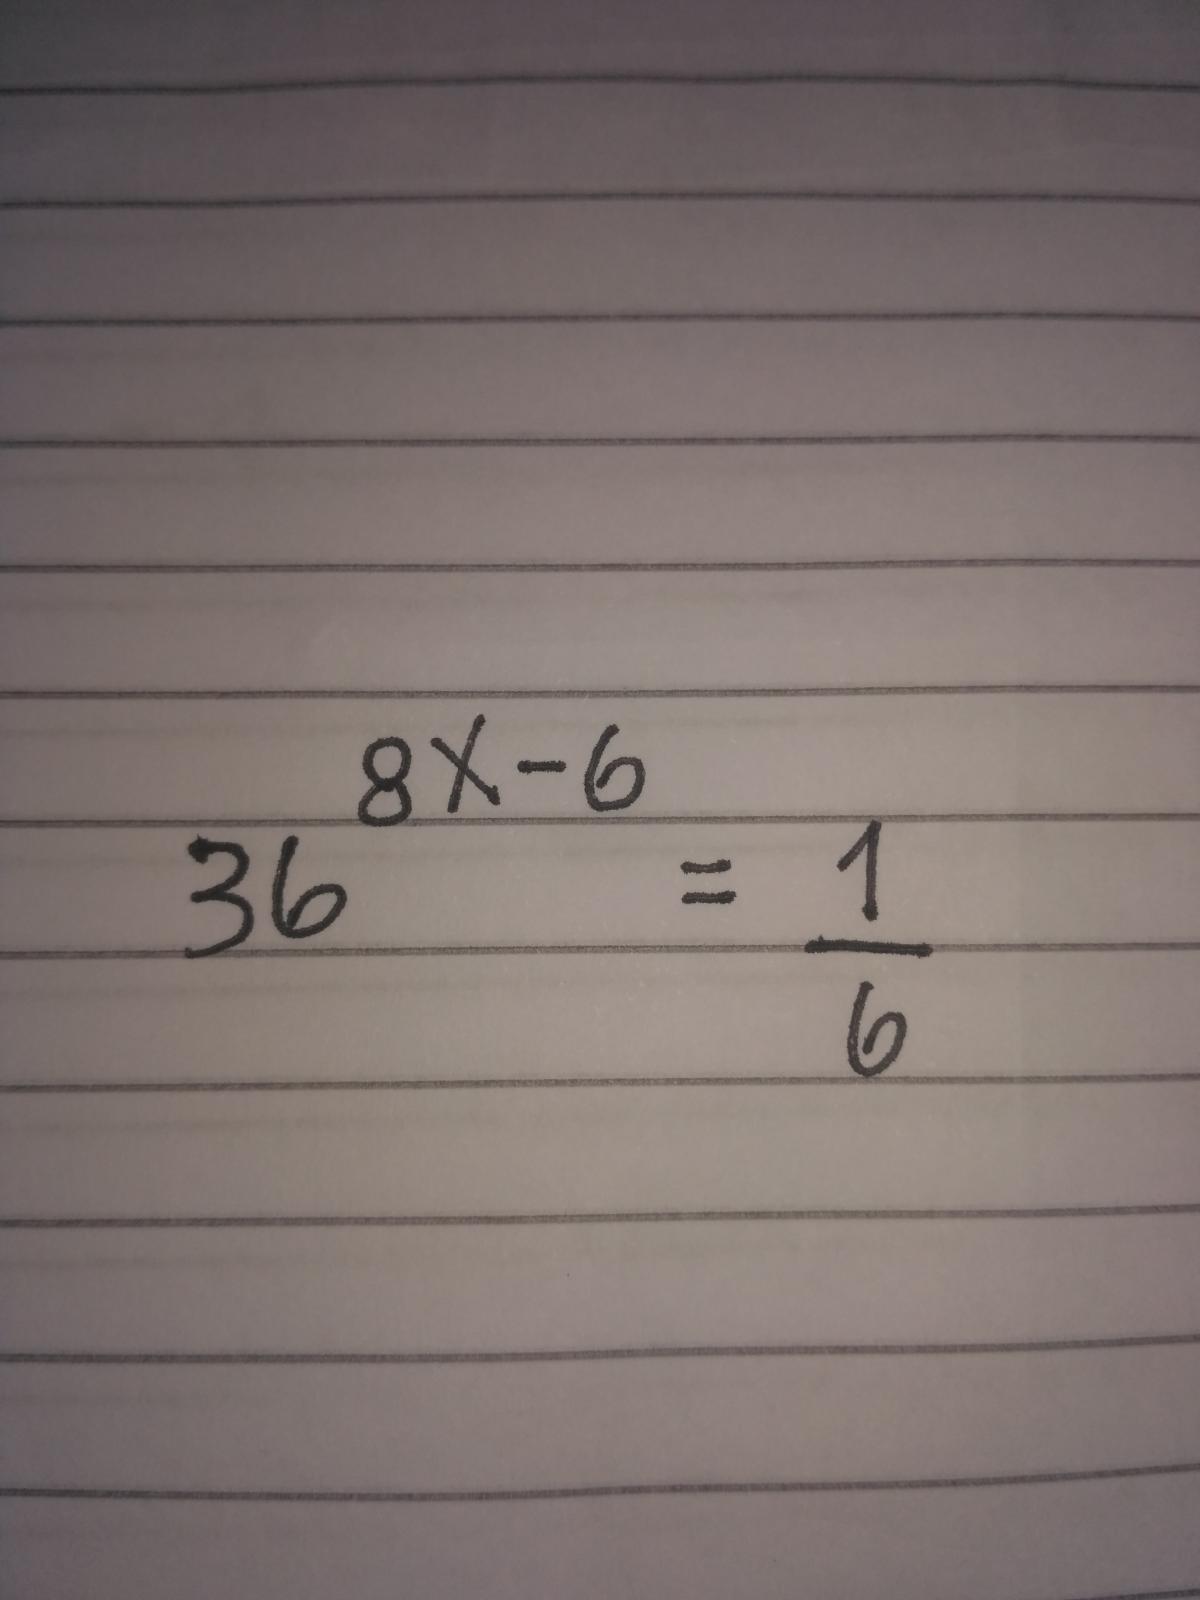 36^{8x-6} = \frac{1}{6}